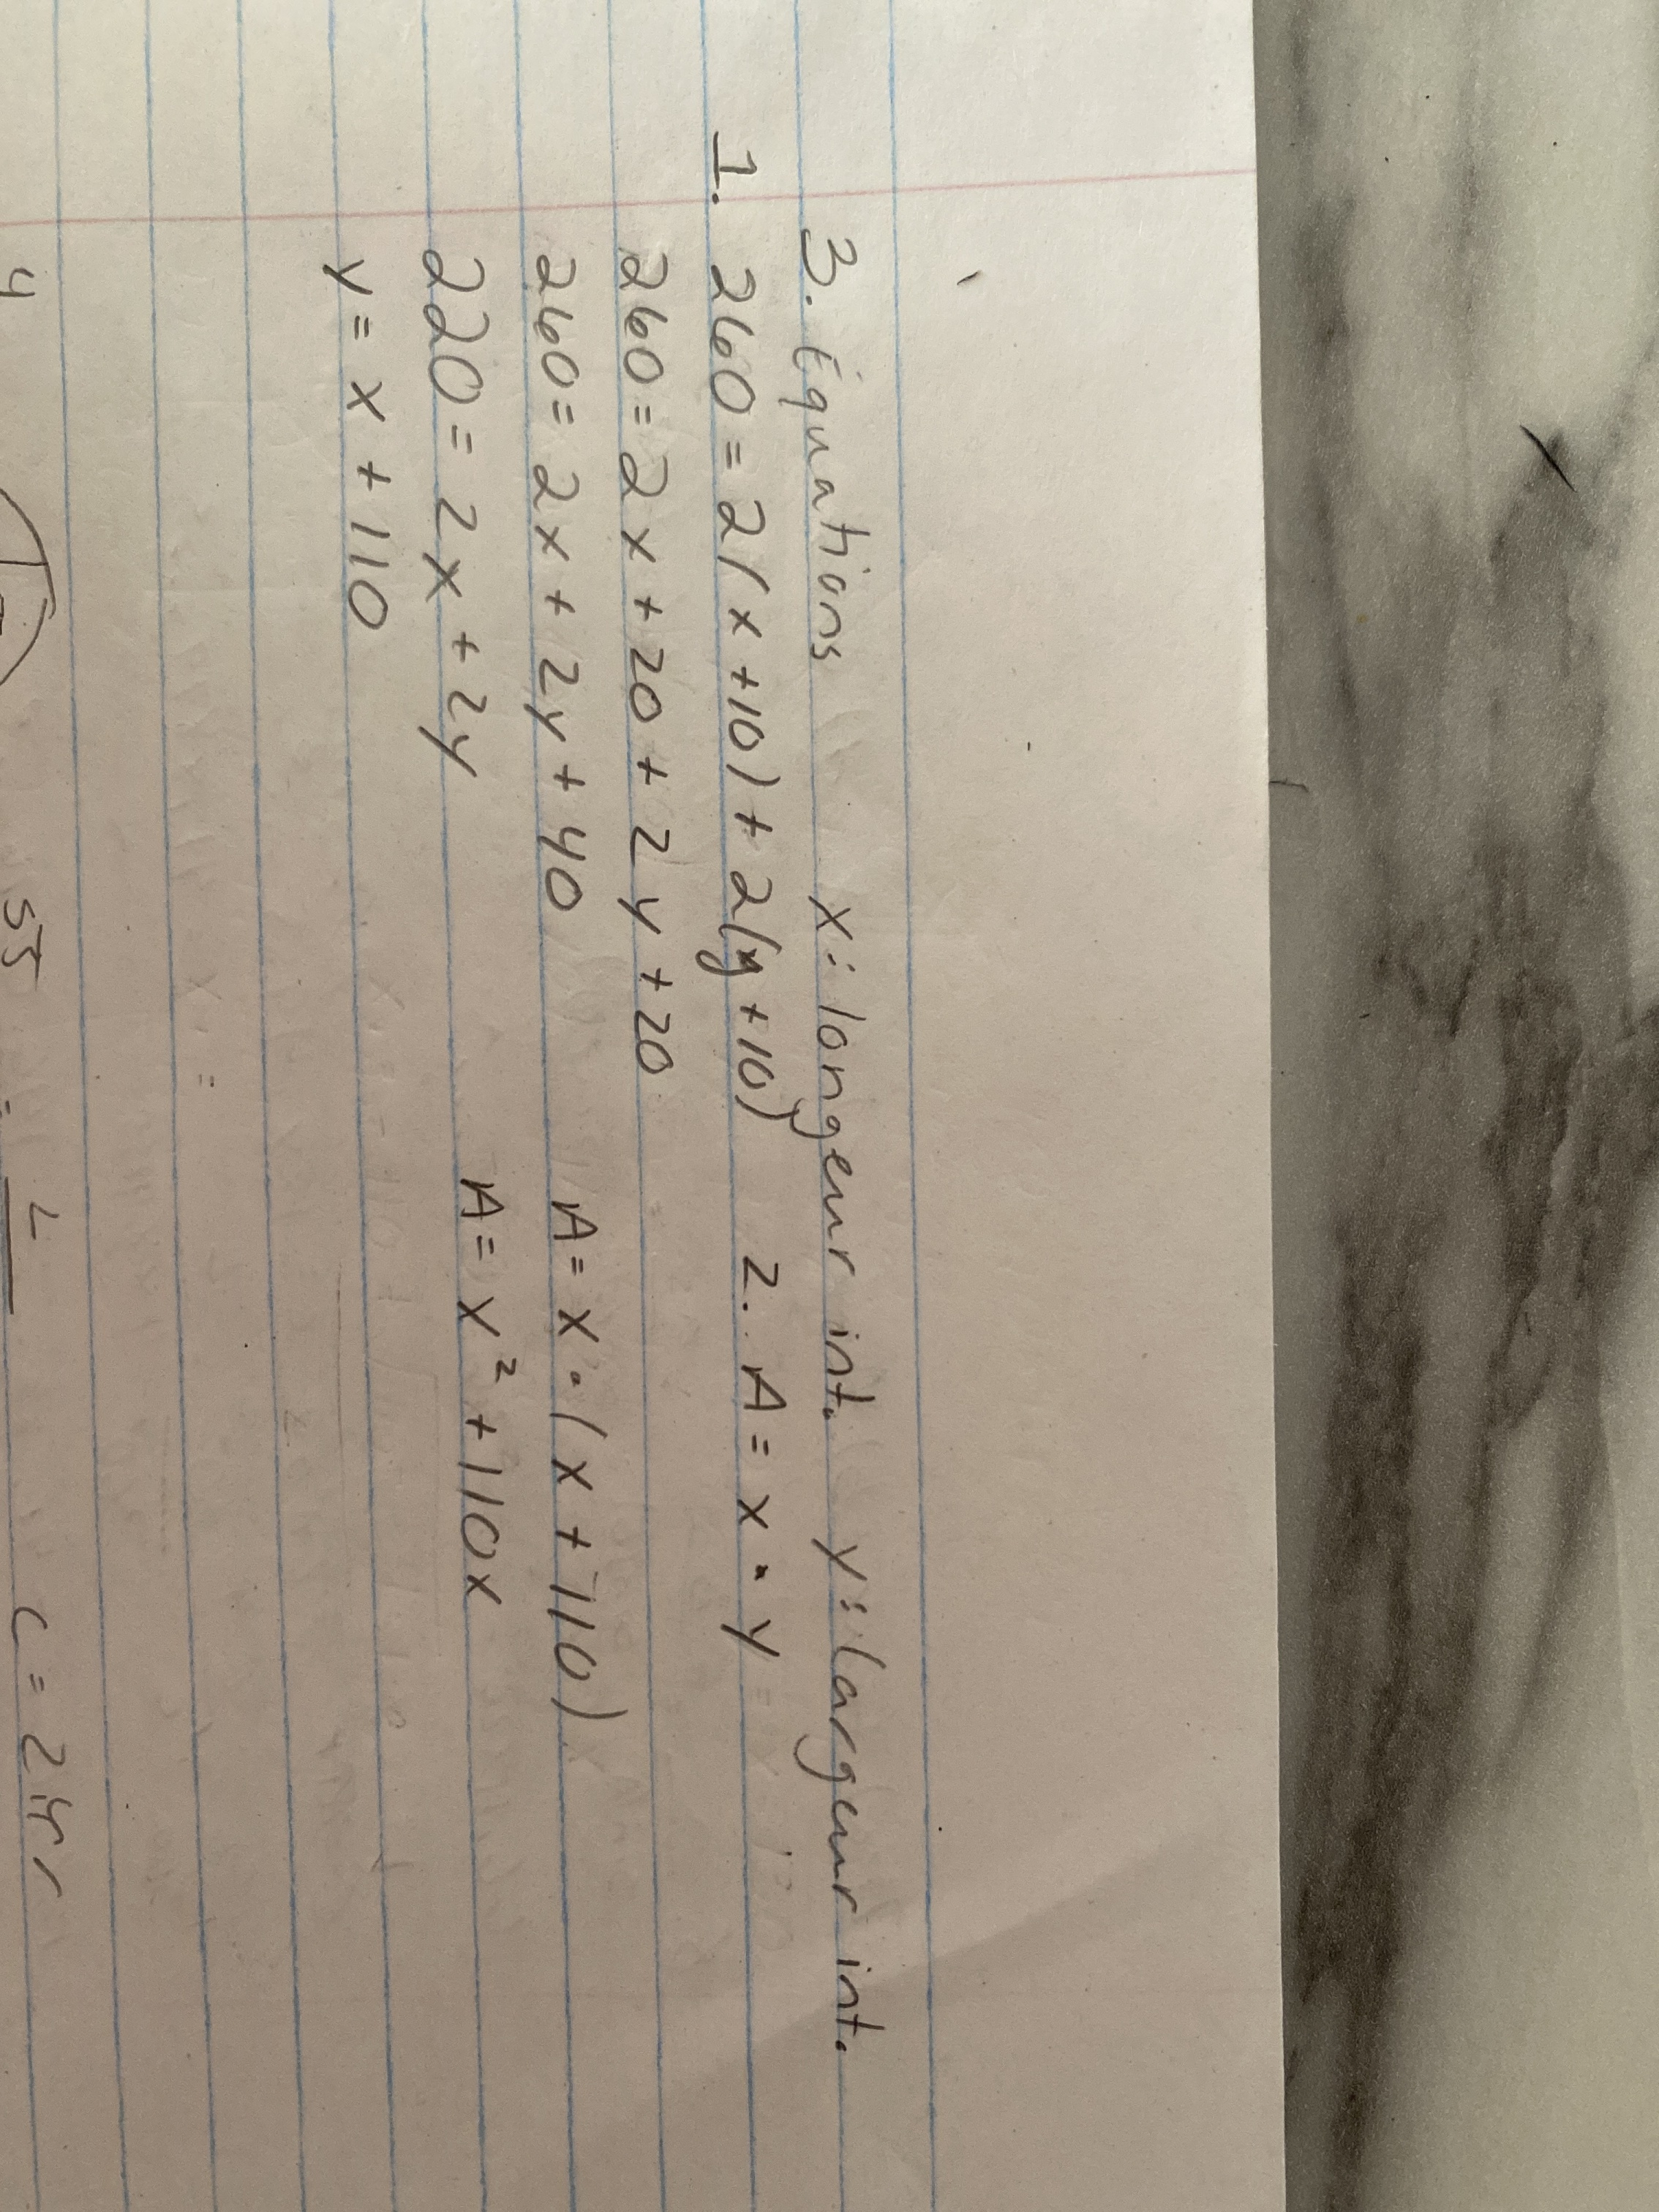 3. Équations x: longeur int. y: largeur int.
1. 260 = 2(x+10) + 2(y+10) 2. A = x · y
260 = 2x + 20 + 2y + 20
260 = 2x + 2y + 40 A = x · (x + 110)
220 = 2x + 2y A = x² + 110x
y = x + 110
4 55 = L C = 2πr